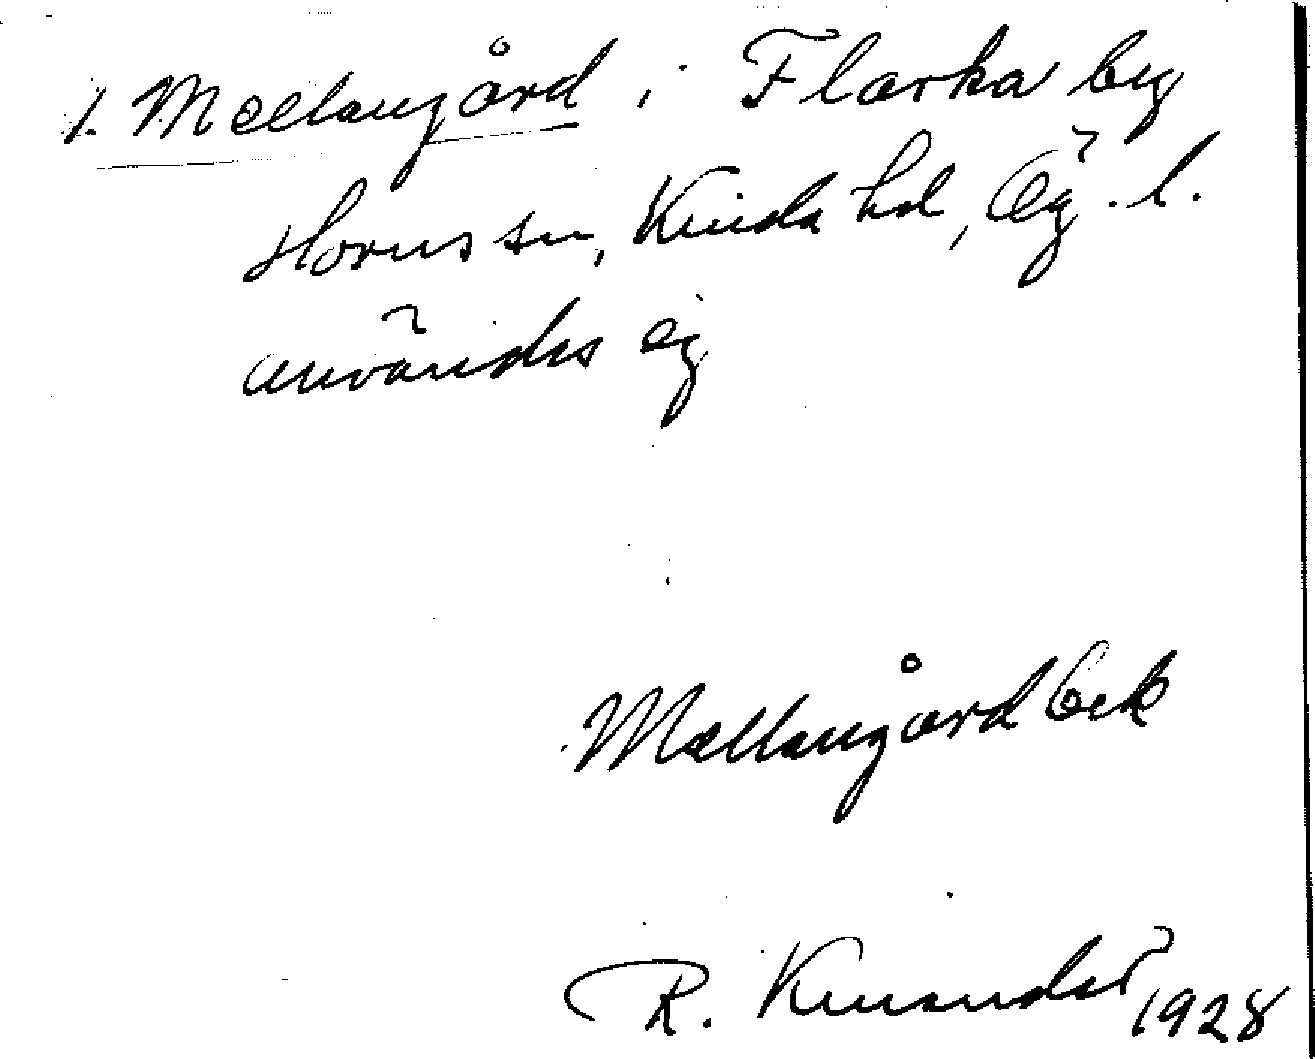 1. Mellangård i Flarka by
Horns sn, Kinda hd, Ög. l.
användes ej
Mellangård bek
R. 1928